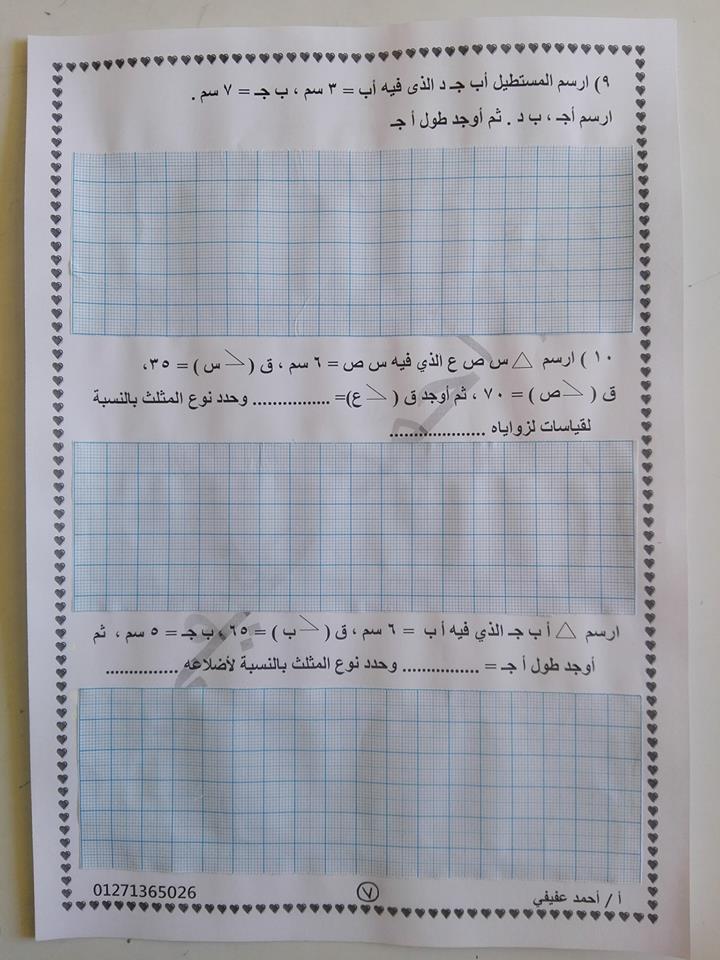 ٩) ارسم المستطيل أب جـ د الذى فيه أب = ٣ سم ، ب جـ = ٧ سم .
ارسم أجـ ، ب د . ثم أوجد طول أ جـ
١٠ ) ارسم △ س ص ع الذي فيه س ص = ٦ سم ، ق ( س ) = ٣٥،
ق ( ص ) = ٧٠ ، ثم أوجد ق ( ع)= ................ وحدد نوع المثلث بالنسبة
لقياسات لزواياه ....................
ارسم △ أ ب جـ الذي فيه أ ب = ٦ سم ، ق ( ب ) = ٦٥ ، ب جـ = ٥ سم ، ثم
أوجد طول أ جـ = ................ وحدد نوع المثلث بالنسبة لأضلاعه ...............
أ / أحمد عفيفي ٧ 01271365026